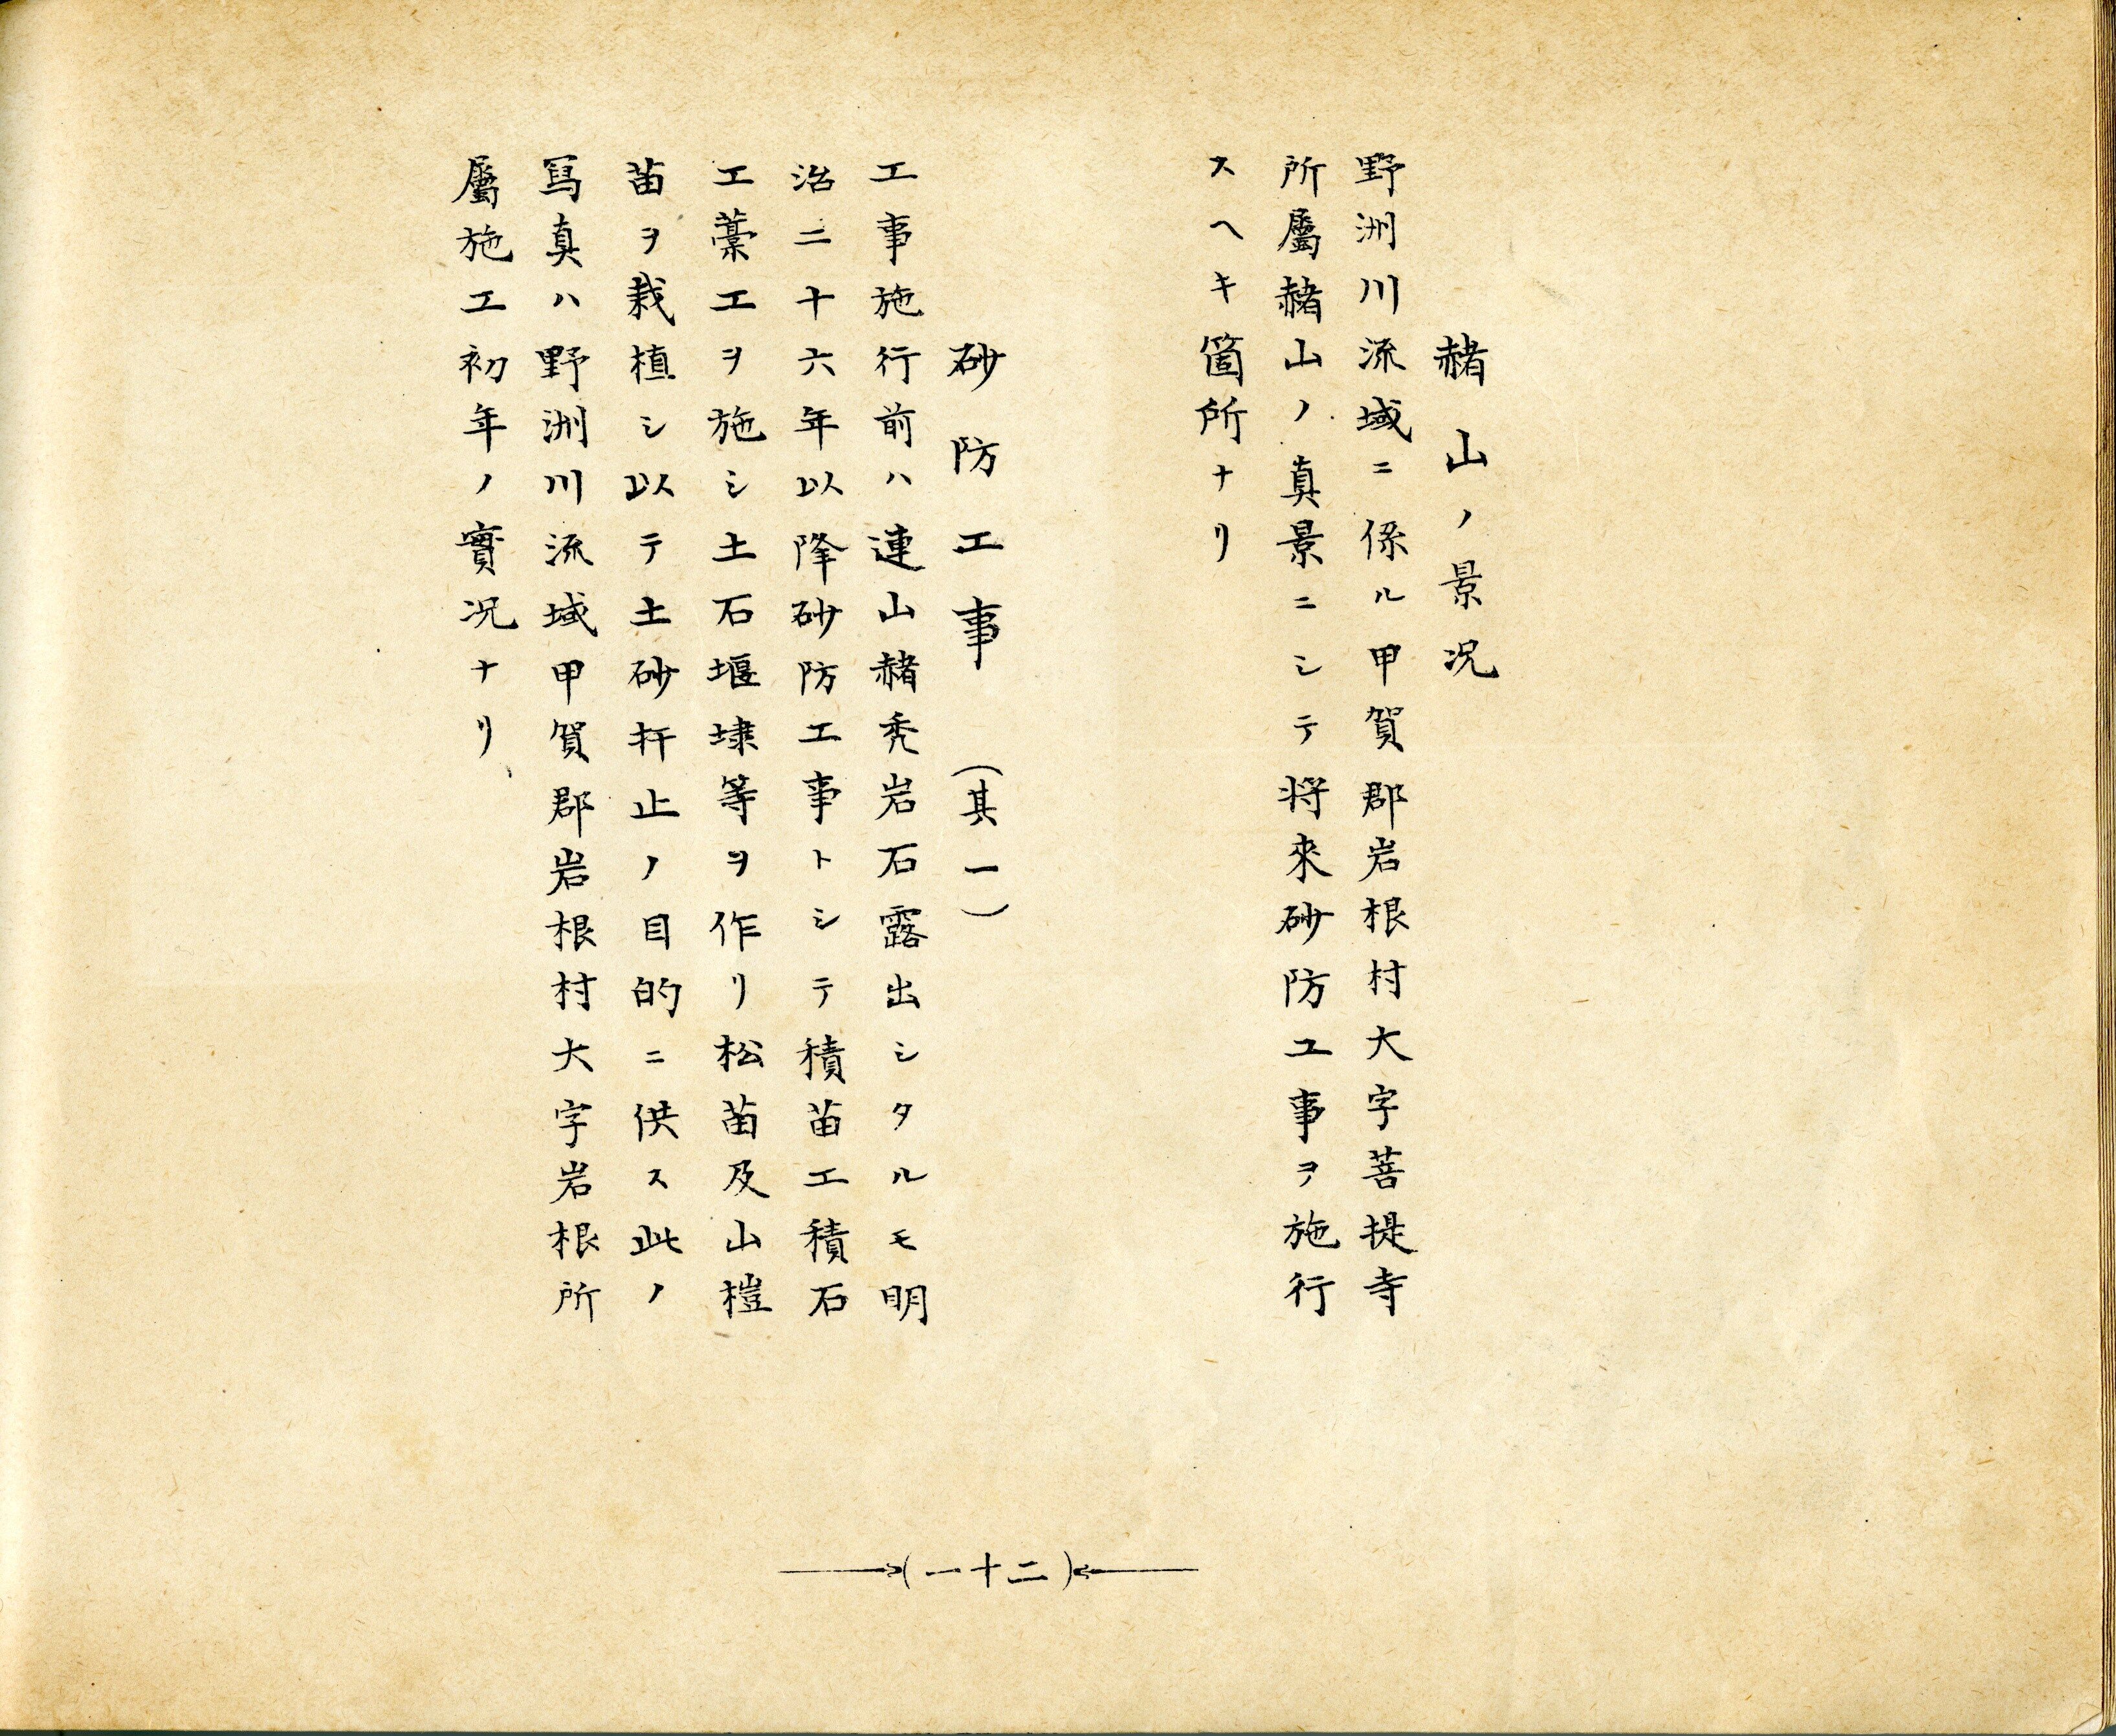 赭山ノ景況
野洲川流域ニ係ル甲賀郡岩根村大字菩提寺
所屬赭山ノ真景ニシテ将來砂防工事ヲ施行
スヘキ箇所ナリ
砂防工事　（其一）
工事施行前ハ連山赭禿岩石露出シタルモ明
治二十六年以降砂防工事トシテ積苗工積石
工藁工ヲ施シ土石堰埭等ヲ作リ松苗及山榿
苗ヲ栽植シ以テ土砂扞止ノ目的ニ供ス此ノ
寫真ハ野洲川流域甲賀郡岩根村大字岩根所
屬施工初年ノ實況ナリ
（一十二）